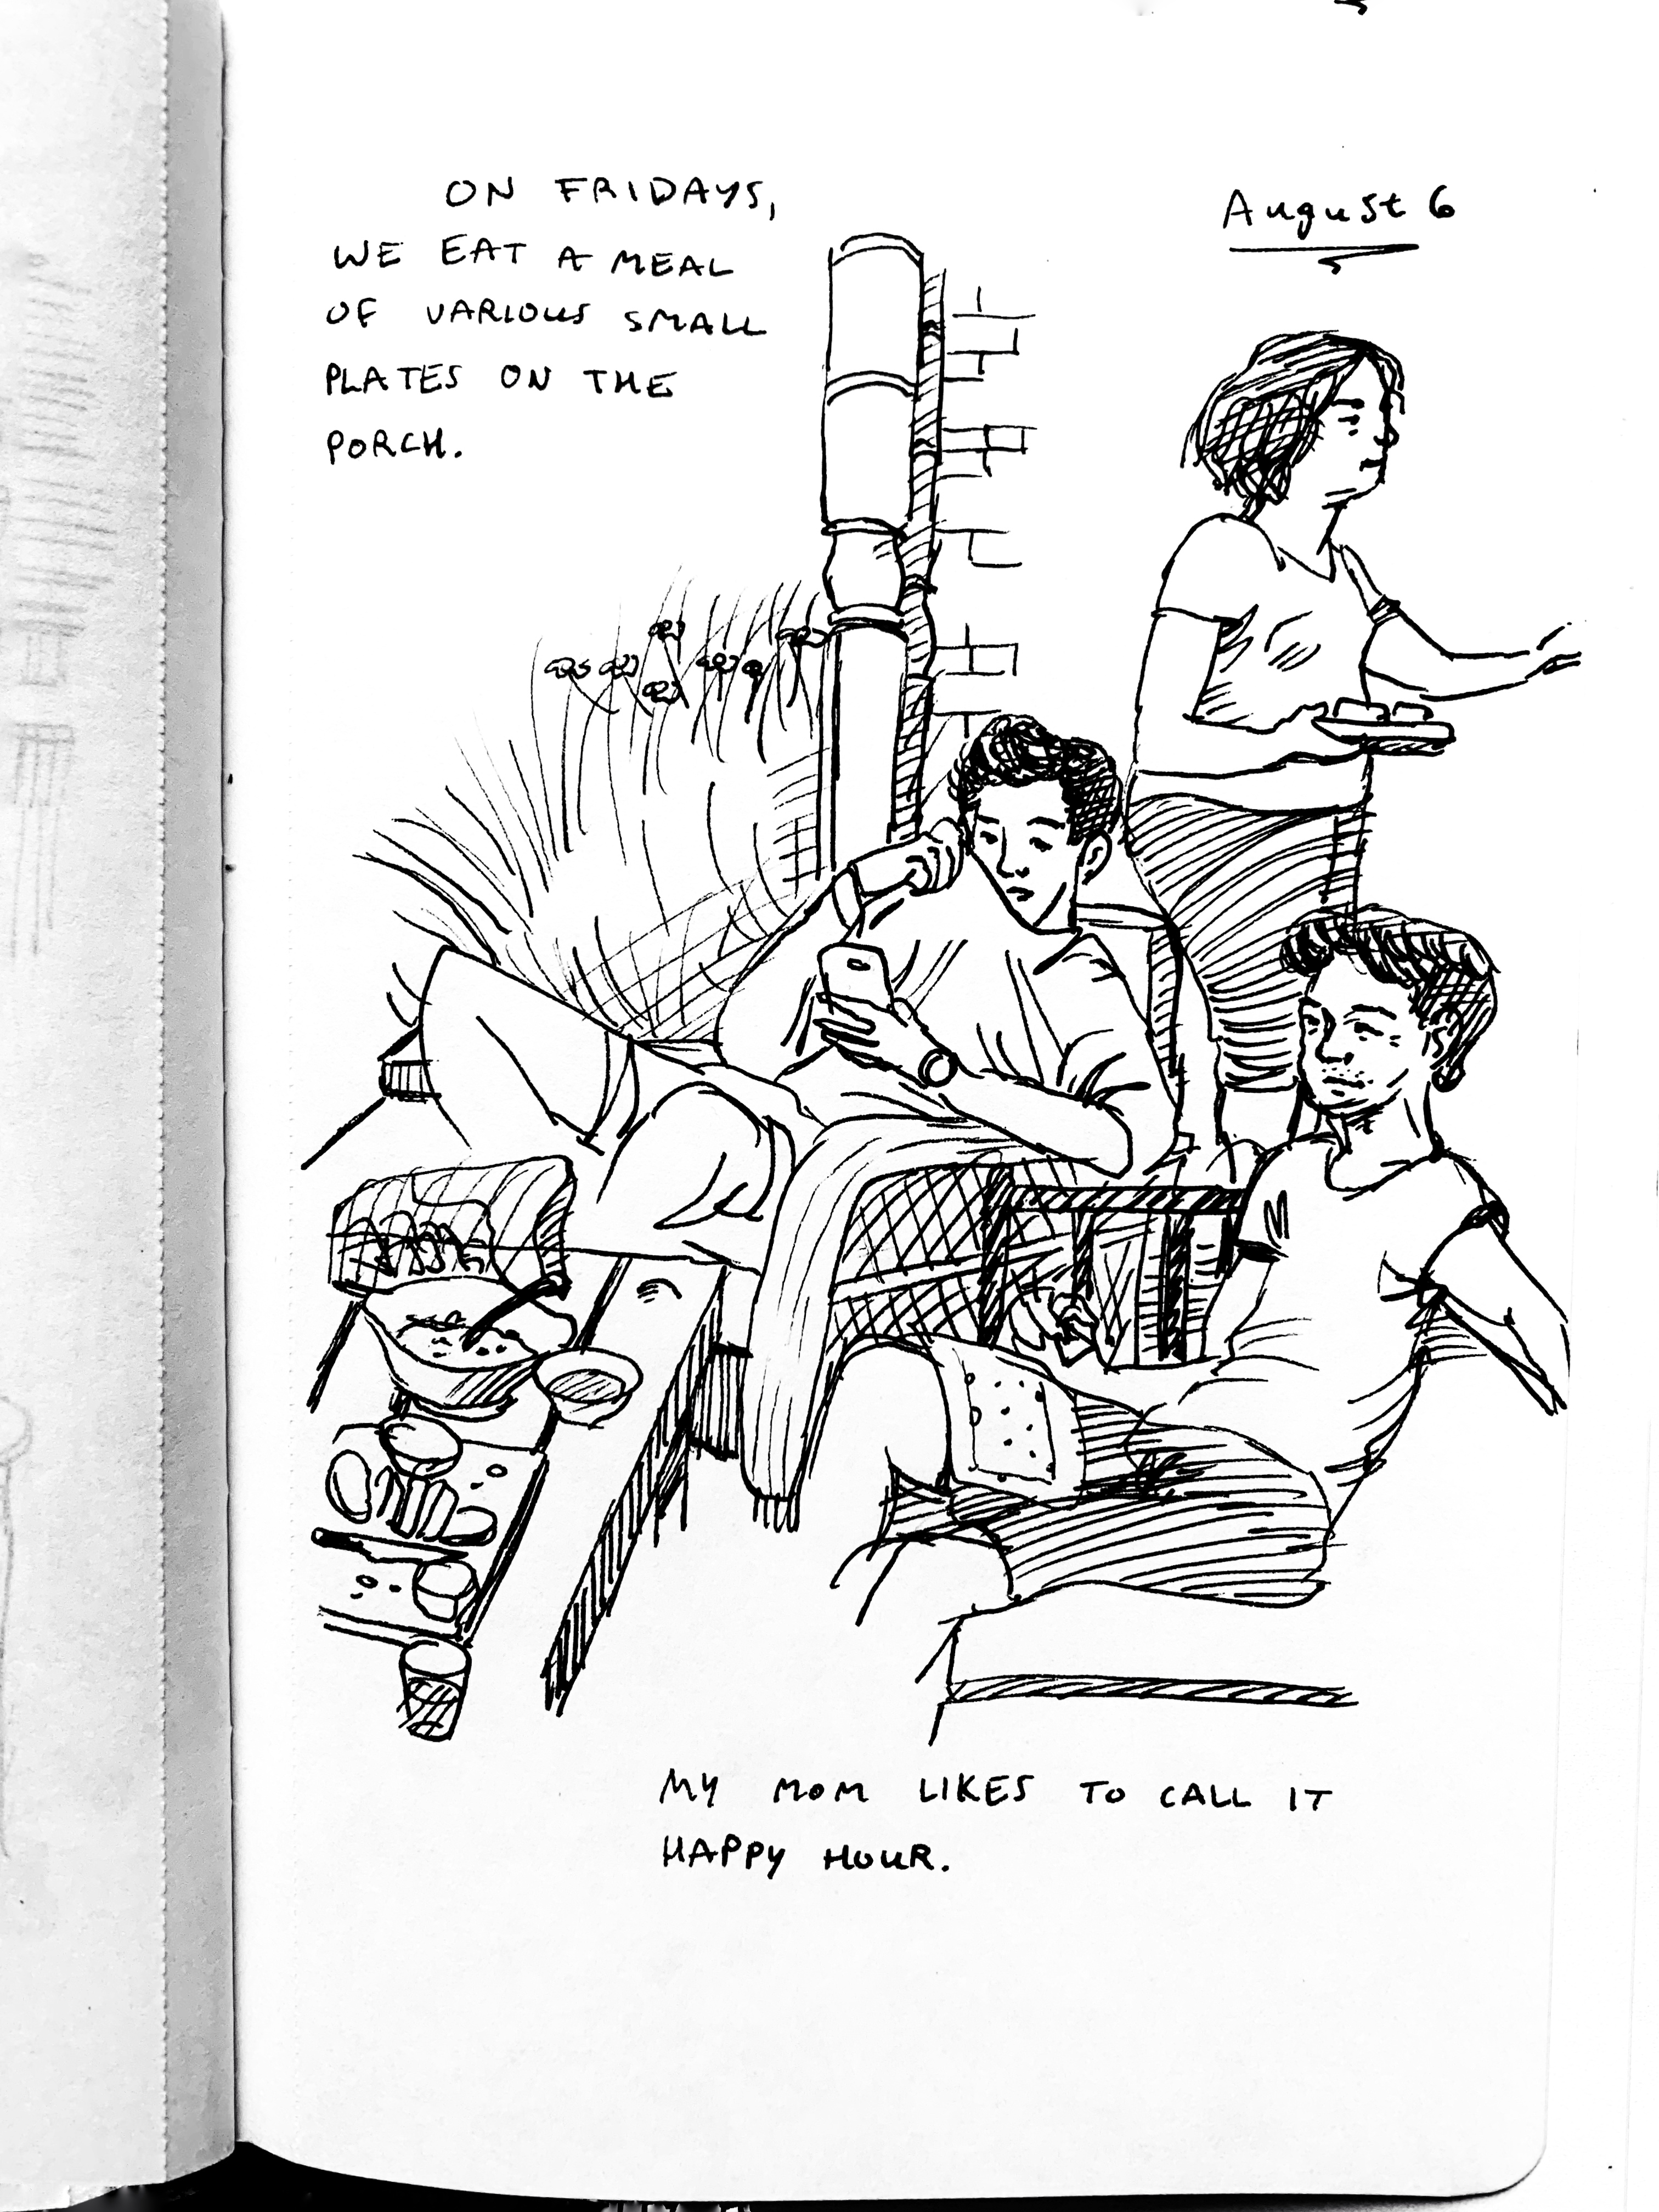 ON FRIDAYS,
WE EAT A MEAL
OF VARIOUS SMALL
PLATES ON THE
PORCH.
August 6
MY MOM LIKES TO CALL IT
HAPPY HOUR.